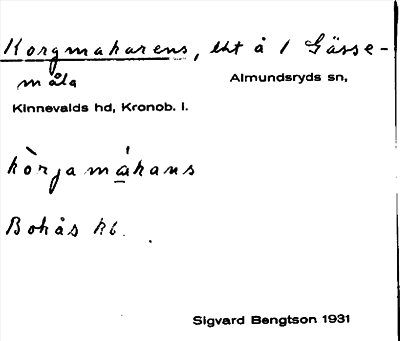 Korgmakarens, lht å 1 Gässe-
måla
Almundsryds sn,
Kinnevalds hd, Kronob. l.
kòrjamákans
Bohås kb.
Sigvard Bengtson 1931